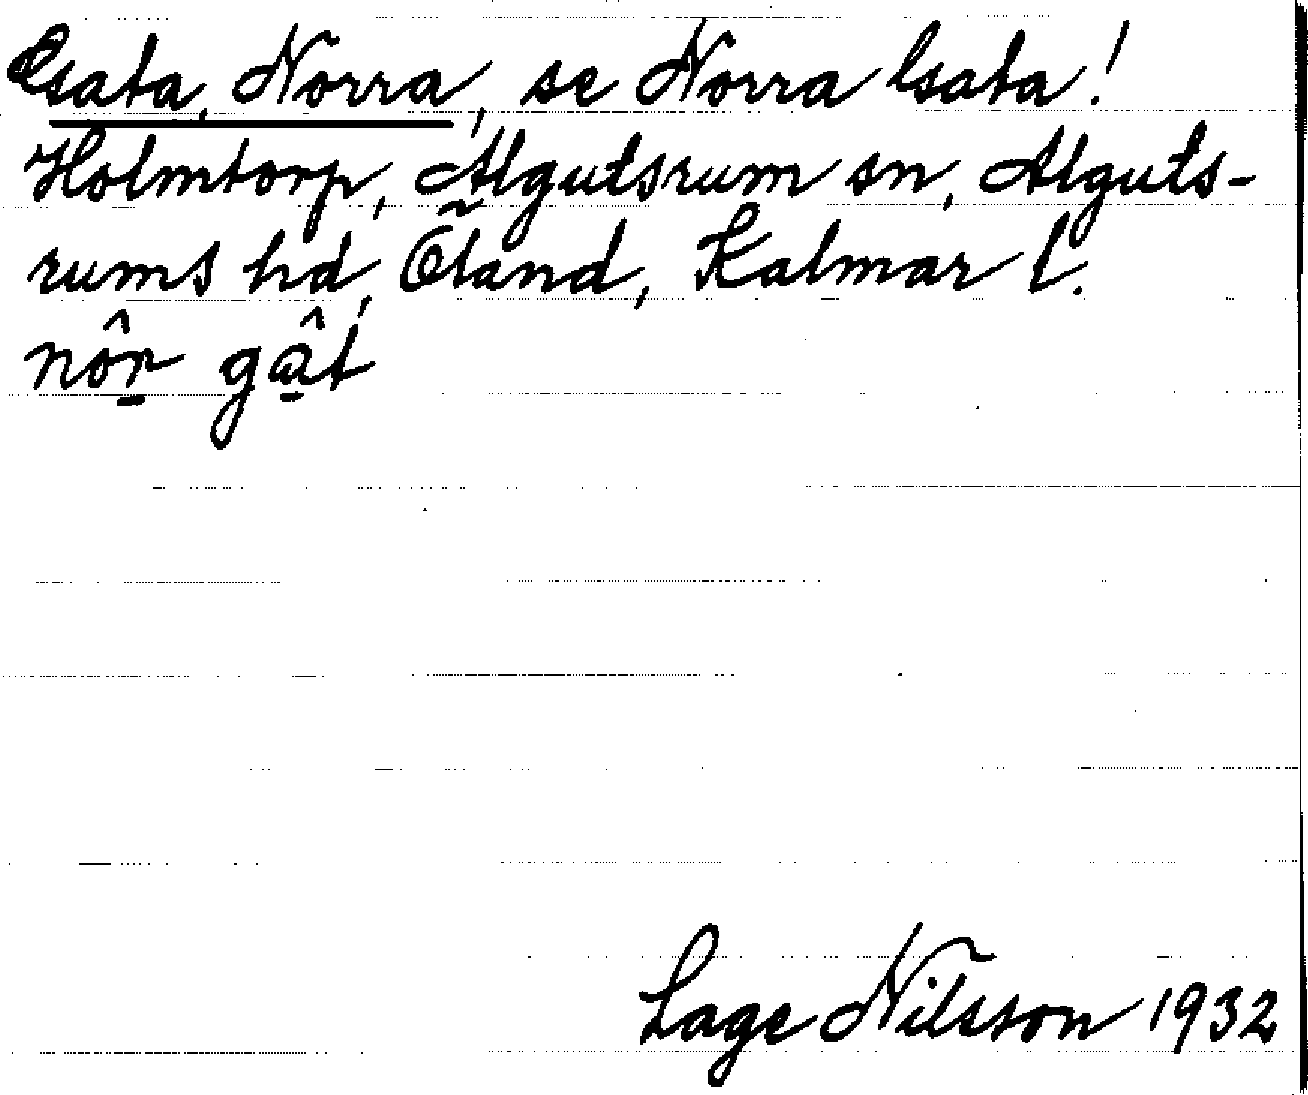 Gata, Norra, se Norra Gata!
Holmtorp, Algutsrum sn, Alguts-
rums hd, Öland, Kalmar l.
nôr gât
Lage Nilsson 1932